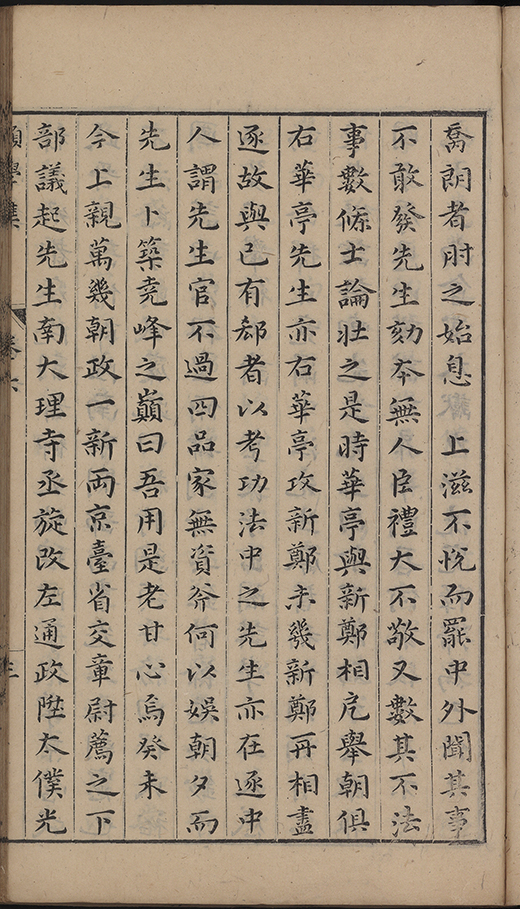 喬朗者肘之始息　上滋不悅而罷中外聞其事
不敢發先生劾夲無人臣禮大不敬又數其不法
事數條士論壯之是時華亭與新鄭相戹舉朝俱
右華亭先生亦右華亭攻新鄭未幾新鄭再相盡
逐故與已有郄者以考功法中之先生亦在逐中
人謂先生官不過四品家無資斧何以娛朝夕而
先生卜築堯峰之巔曰吾用是老甘心焉癸未
今上親萬幾朝政一新両京臺省交章尉薦之下
部議起先生南大理寺丞旋改左通政陞太僕光
卷六